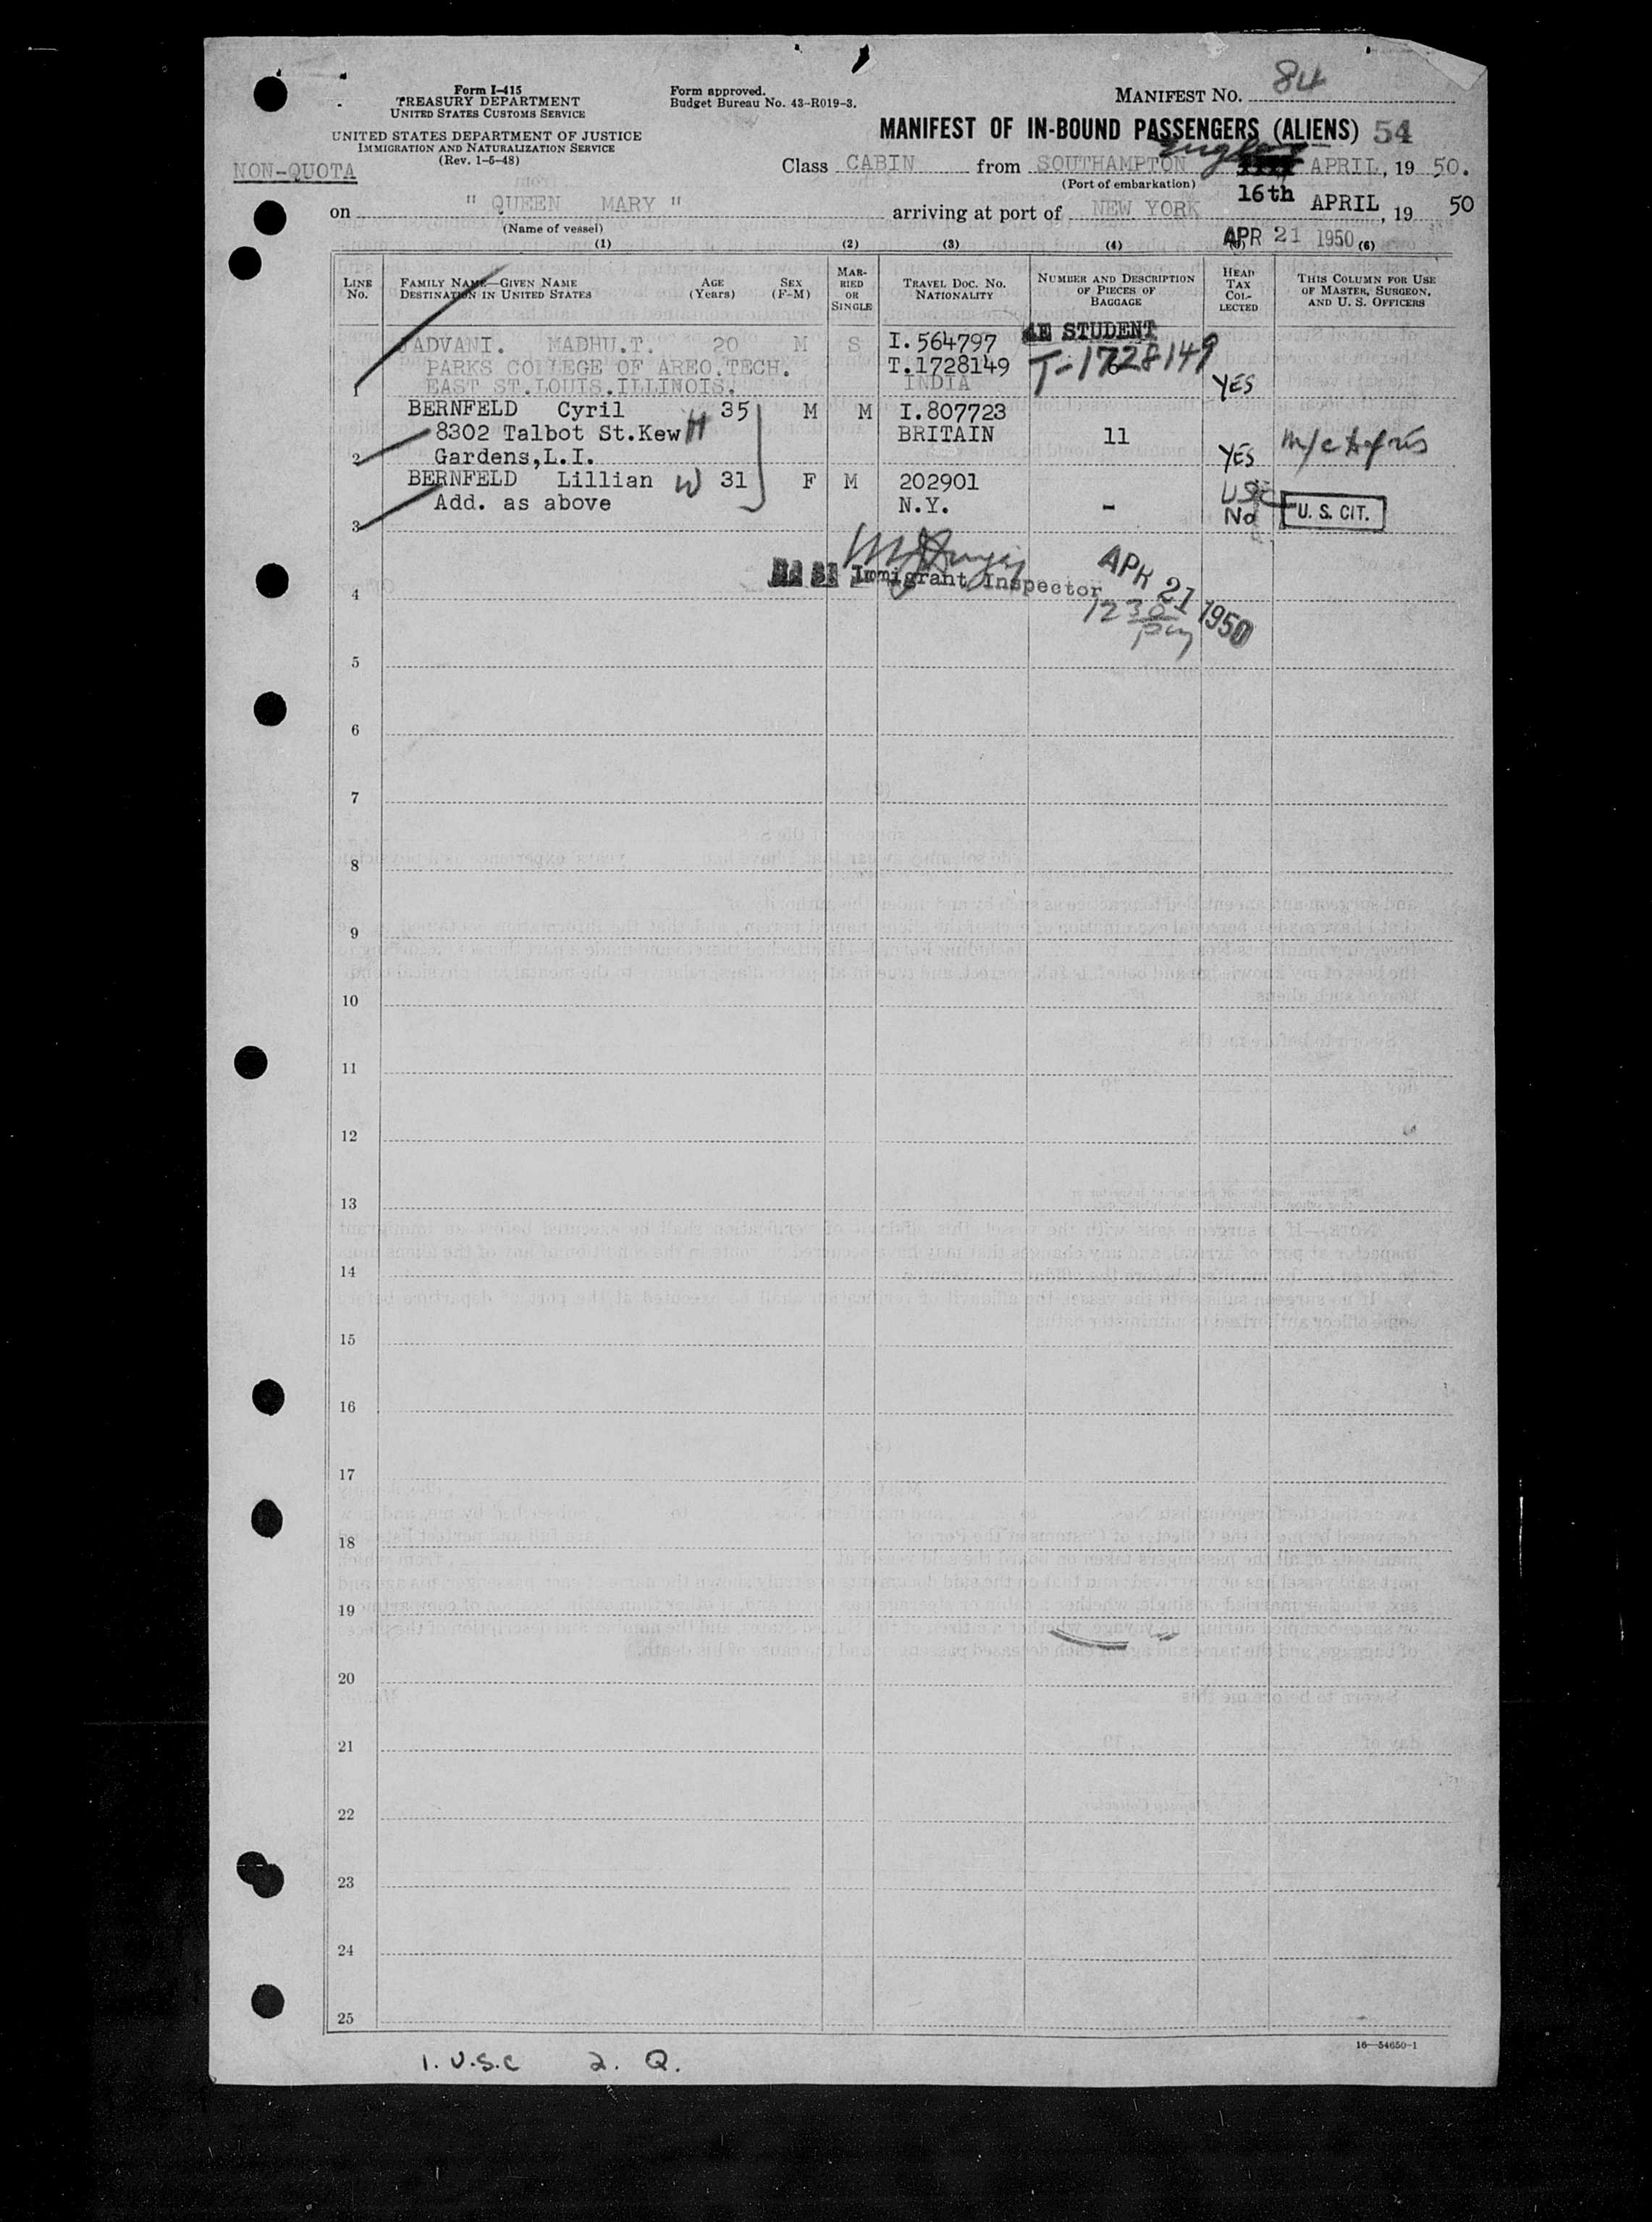 Form I-415
TREASURY DEPARTMENT
UNITED STATES CUSTOMS SERVICE
UNITED STATES DEPARTMENT OF JUSTICE
IMMIGRATION AND NATURALIZATION SERVICE
(Rev. 1-5-48)
Form approved.
Budget Bureau No. 43-R019-3.
MANIFEST NO. 84
MANIFEST OF IN-BOUND PASSENGERS (ALIENS) 54
NON-QUOTA
Class CABIN from SOUTHAMPTON England APRIL, 19 50.
(Port of embarkation)
16th
on " QUEEN MARY " arriving at port of NEW YORK APRIL, 19 50
(Name of vessel)
APR 21 1950
(1) (2) (3) (4) (6)
LINE No. FAMILY NAME—GIVEN NAME DESTINATION IN UNITED STATES AGE (Years) SEX (F-M) MARRIED OR SINGLE TRAVEL DOC. NO. NATIONALITY NUMBER AND DESCRIPTION OF PIECES OF BAGGAGE HEAD TAX COLLECTED THIS COLUMN FOR USE OF MASTER, SURGEON, AND U. S. OFFICERS
4E STUDENT
JADVANI. MADHU.T. 20 M S I.564797
PARKS COLLEGE OF AREO.TECH. T.1728149 T-1728149 6
1 EAST ST.LOUIS.ILLINOIS. INDIA YES
BERNFELD Cyril 35 M M I.807723
8302 Talbot St.Kew H BRITAIN 11
2 Gardens,L.I. YES
BERNFELD Lillian W 31 F M 202901 USC
Add. as above N.Y. - No U. S. CIT.
3
Immigrant Inspector
APR 21 1950
12 30 pm
4
5
6
7
8
9
10
11
12
13
14
15
16
17
18
19
20
21
22
23
24
25
16—54650-1
1. U.S.C 2. Q.